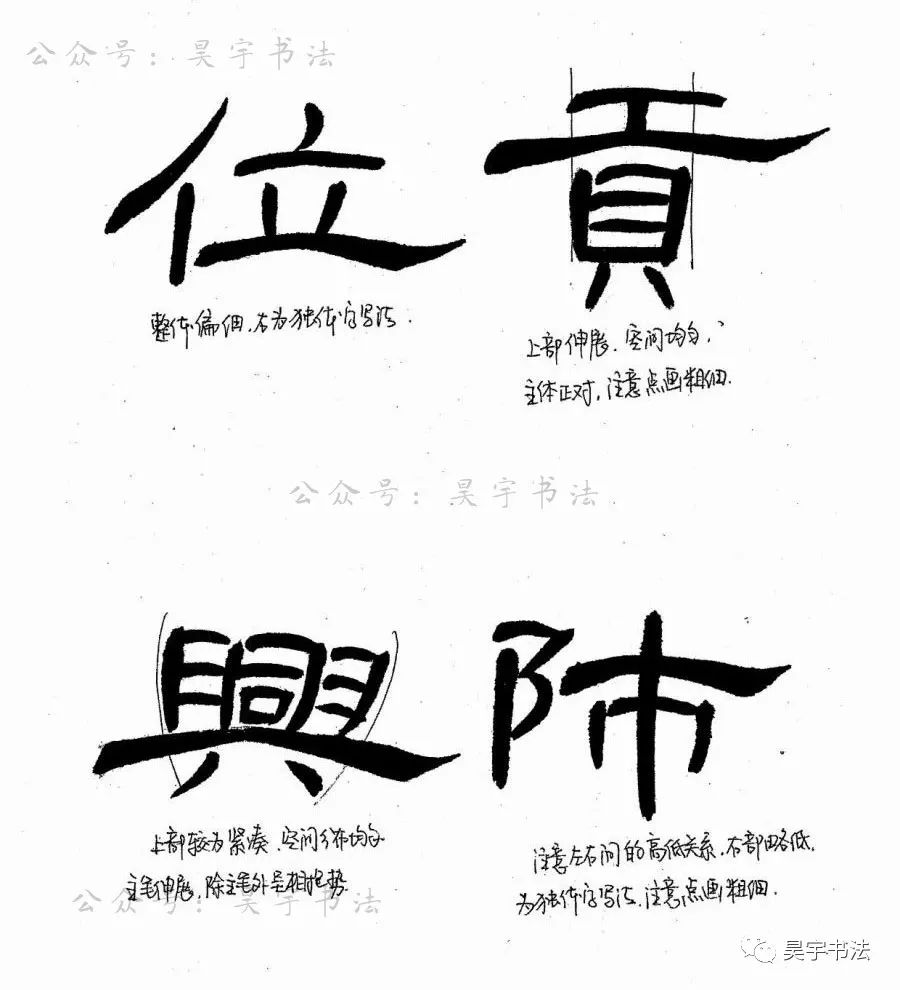 公众号：昊宇书法
位 貢
整体偏细，右为独体字写法．
上部伸展、空间均匀，
主体正对，注意点画粗细．
公众号：昊宇书法
興
上部较为紧凑、空间分布均匀
主笔伸展，除主笔外呈相抱势
注意左右间的高低关系，右部略低．
为独体字写法，注意点画粗细．
公众号：昊宇书法
昊宇书法